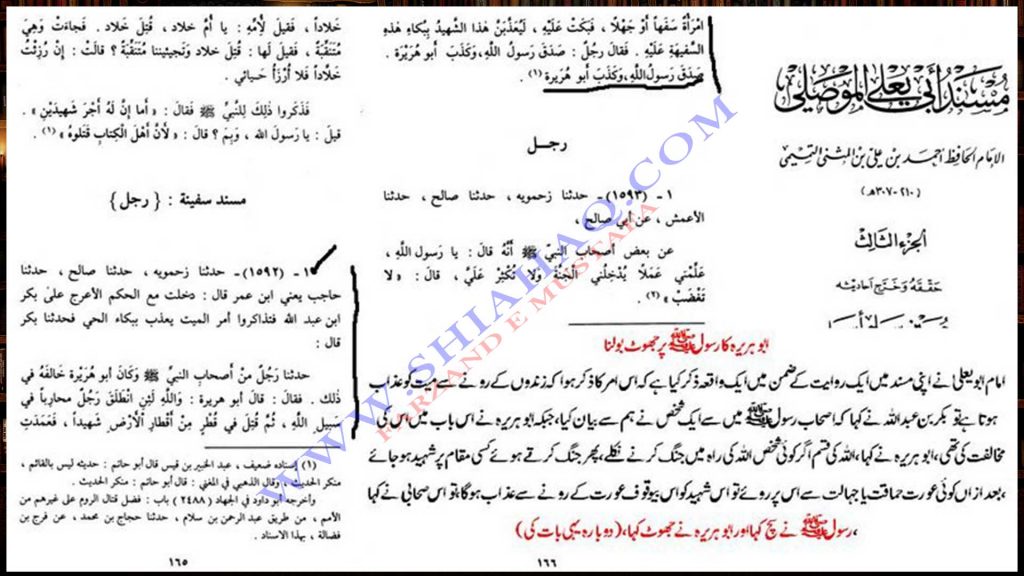 مُسْنَدُ أَبِي يَعْلَى المَوْصِلِيّ
الإمام الحافظ أحمد بن علي بن المثنى التميمي
(٢١٠-٣٠٧هـ)
الجزء الثالث
حققه وخرج أحاديثه
خلاداً ، فقيل لأمه : يا أم خلاد ، قُتِلَ خلاد . فجاءت وهي
مُتَنَقِّبَة ، فقيل لها : قُتِلَ خلاد وتجيئيننا متنقبة ؟ قالت : إن رُزِئْتُ
خلاداً فلا أُرْزَأُ حيائي .
فذكروا ذلك للنبيّ ﷺ فقال : « أما إن له أجر شهيدين » .
قيل : يا رسول الله ، وبم ؟ قال : « لأن أهل الكتاب قتلوه » (١) .
مسند سفينة : { رجل }
١ - (١٥٩٢) - حدثنا زحمويه ، حدثنا صالح ، حدثنا
حاجب يعني ابن عمر قال : دخلت مع الحكم الأعرج على بكر
ابن عبد الله فتذاكروا أمر الميت يعذب ببكاء الحي فحدثنا بكر
قال :
حدثنا رَجُلٌ مِنْ أصحابِ النبيّ ﷺ وَكَانَ أبو هُرَيْرَةَ خَالَفَهُ في
ذلك . فقالَ : قالَ أبو هريرة : وَاللَّهِ لَئِنِ انْطَلَقَ رَجُلٌ محارباً في
سَبِيلِ اللَّهِ ، ثُمَّ قُتِلَ في قُطْرٍ مِنْ أقطارِ الأَرْضِ شهيداً ، فَعَمَدَتِ
(١) إسناده ضعيف ، عبد الخبير بن قيس قال أبو حاتم : حديثه ليس بالقائم ،
منكر الحديث ، وقال الذهبي في المغني : قال أبو حاتم : منكر الحديث .
وأخرجه أبو داود في الجهاد (٢٤٨٨) باب : فضل قتال الروم على غيرهم من
الأمم ، من طريق عبد الرحمن بن سلام ، حدثنا حجاج بن محمد ، عن فرج بن
فضالة ، بهذا الاسناد .
١٦٥
امْرَأَةٌ سَفَهاً أَوْ جَهْلًا ، فَبَكَتْ عَلَيْهِ ، لَيُعَذَّبَنَّ هَذَا الشهيدُ بِبُكَاءِ هَذِهِ
السَّفِيهَةِ عَلَيْهِ . فَقَالَ رَجُلٌ : صَدَقَ رَسُولُ اللَّهِ، وَكَذَبَ أَبو هُرَيْرَةَ .
صَدَقَ رَسُولُ اللَّهِ، وَكَذَبَ أَبو هُرَيْرَةَ (١) .
رجل
١ - (١٥٩٣) - حدثنا زحمويه ، حدثنا صالح ، حدثنا
الأعمش ، عن أبي صالح ،
عن بعض أصحاب النبيّ ﷺ أنَّهُ قالَ : يا رَسولَ اللَّهِ ،
عَلِّمْنِي عَمَلًا يُدْخِلُنِي الْجَنَّةَ وَلَا تُكْثِرْ عَلَيَّ ، قالَ : « لا
تَغْضَبْ » (٢) .
ابو ہریرہ کا رسول ﷺ پر جھوٹ بولنا
امام ابو یعلی نے اپنی مسند میں ایک روایت کے ضمن میں ایک واقعہ ذکر کیا ہے کہ اس امر کا ذکر ہوا کہ زندوں کے رونے سے میت کو عذاب
ہوتا ہے تو بکر بن عبد اللہ نے کہا کہ اصحاب رسول ﷺ میں سے ایک شخص نے ہم سے بیان کیا، جبکہ ابو ہریرہ نے اس باب میں اس کی
مخالفت کی تھی، ابو ہریرہ نے کہا، اللہ کی قسم اگر کوئی شخص اللہ کی راہ میں جنگ کرنے نکلے، پھر جنگ کرتے ہوئے کسی مقام پر شہید ہو جائے
، بعد از اں کوئی عورت حماقت یا جہالت سے اس پر روئے تو اس شہید کو اس بیوقوف عورت کے رونے سے عذاب ہوگا، تو اس صحابی نے کہا
، رسول ﷺ نے سچ کہا اور ابو ہریرہ نے جھوٹ کہا، (دوبارہ یہی بات کی)
١٦٦
WWW.SHIAHAQ.COM
FARZAND E MUSTAFA